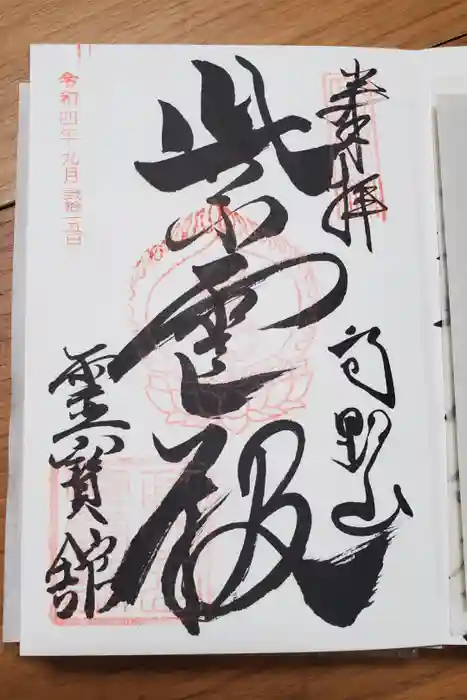 奉拝
高野山
紫雲殿
霊寳館
令和四年九月弐拾五日